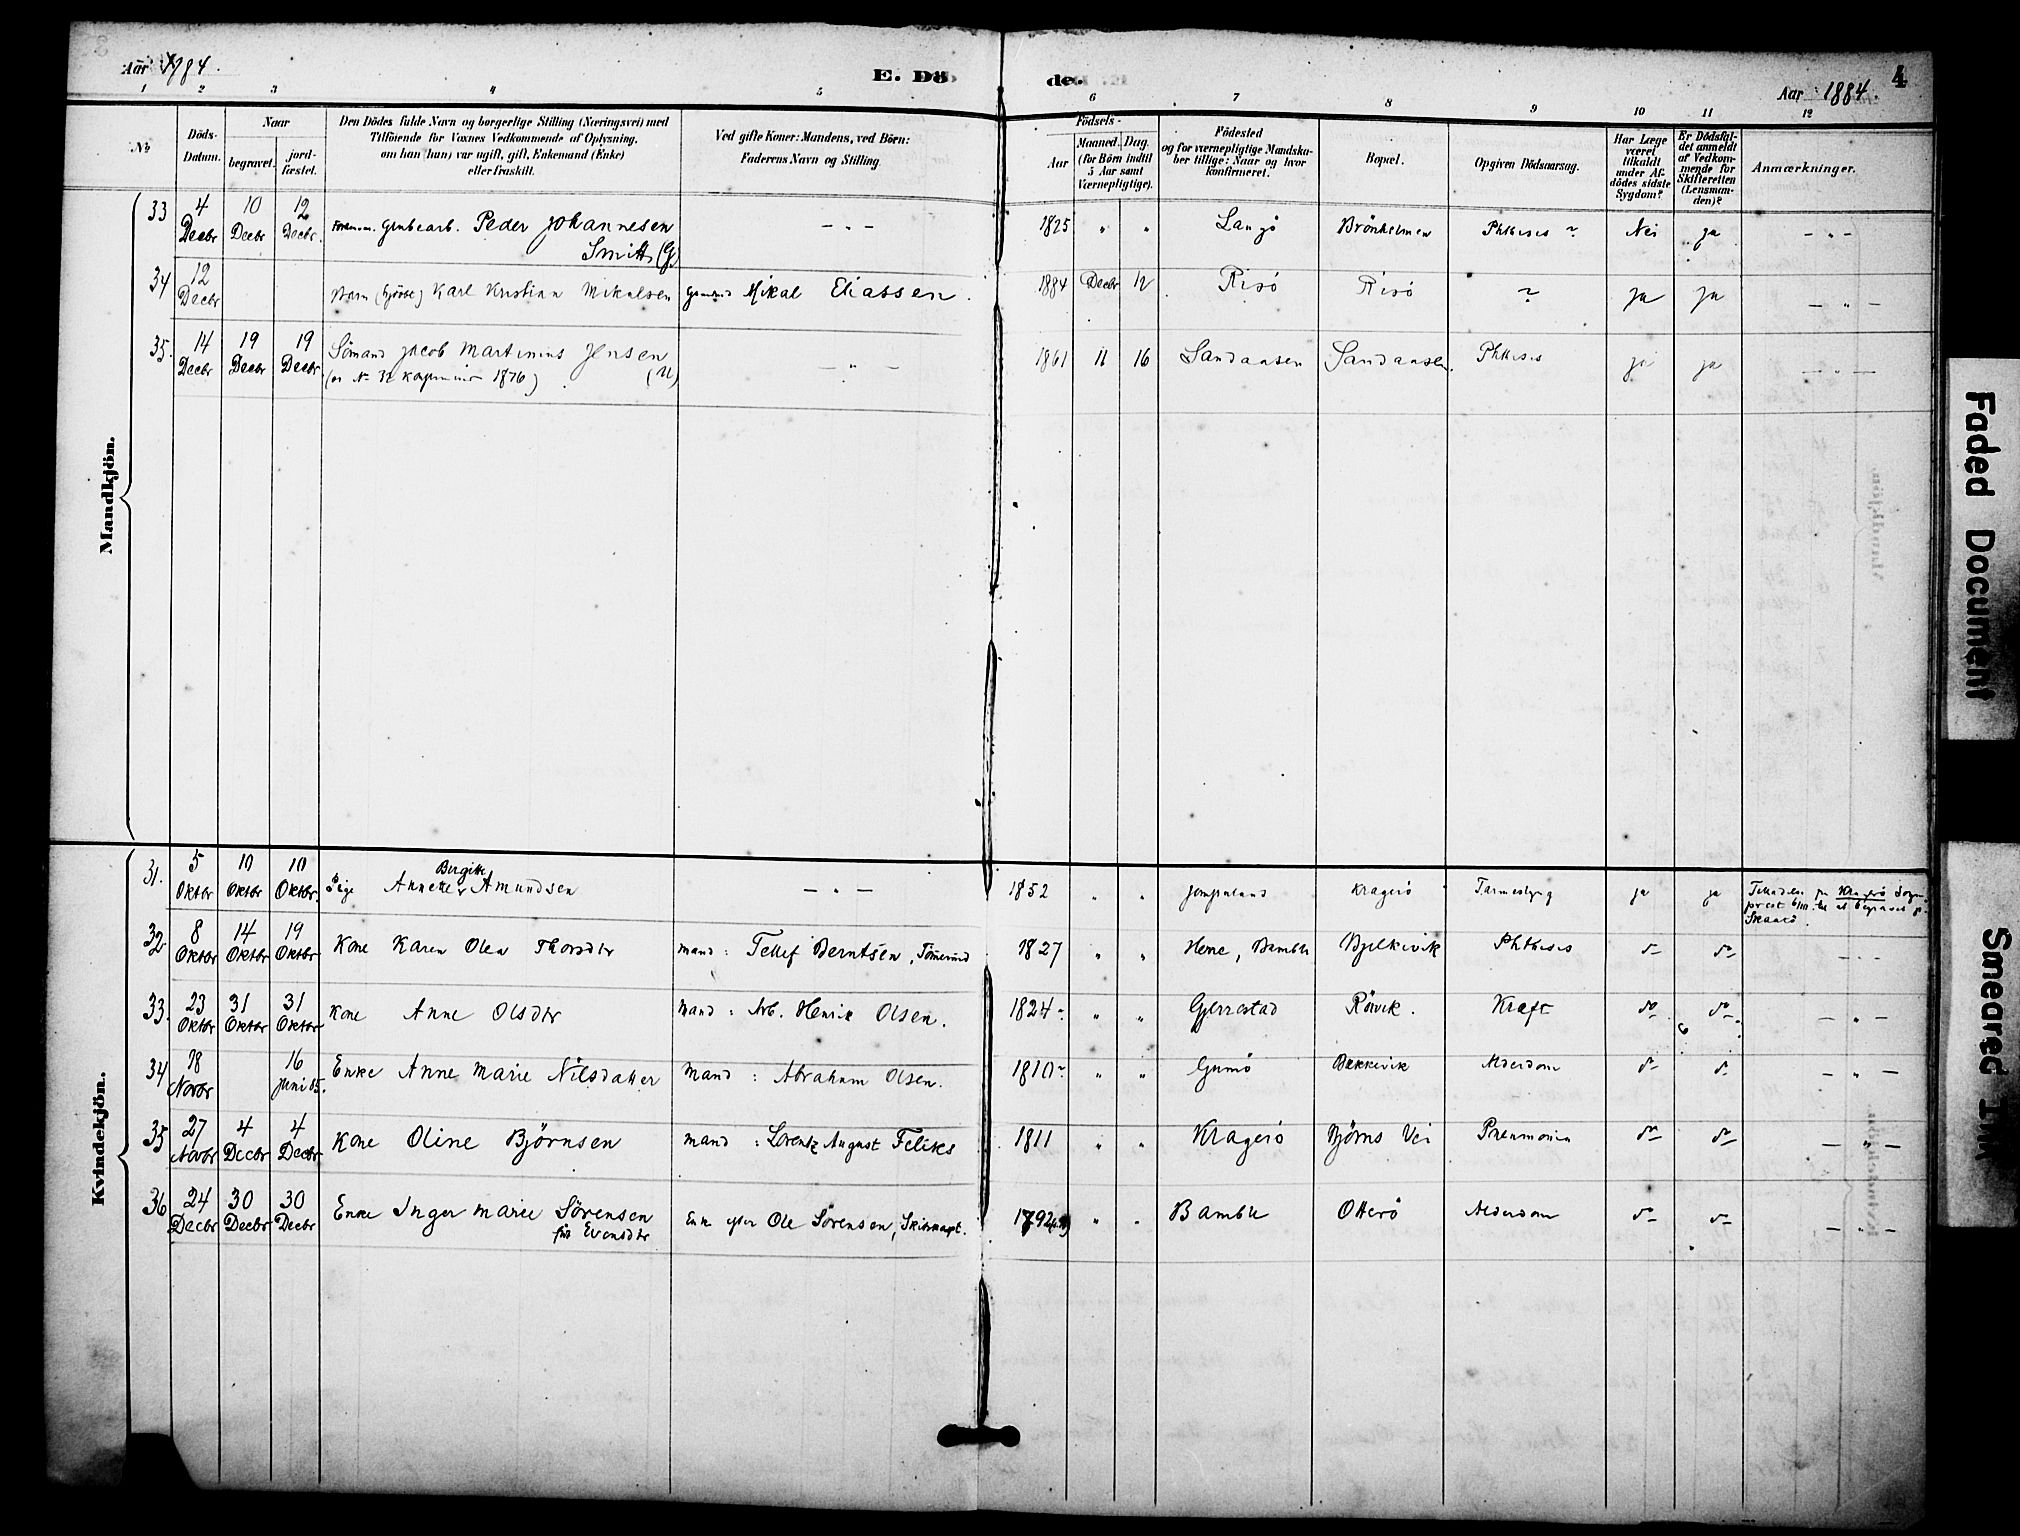 Aar 1884.
E. Döde.
Aar 1884.
4
1 2 3 4 5 6 7 8 9 10 11 12
No
Döds-Datum.
Naar
begravet.
jordfæstet.
Den Dödes fulde Navn og borgerlige Stilling (Næringsvei) med
Tilföiende for Voxnes Vedkommende af Oplysning,
om han (hun) var ugift, gift, Enkemand (Enke)
eller fraskilt.
Ved gifte Koner: Mandens, ved Börn:
Faderens Navn og Stilling.
Födsels-
Aar
Maaned. Dag.
(for Börn indtil
5 Aar samt
Værnepligtige).
Födested
og for værnepligtige Mandska-
ber tillige: Naar og hvor
konfirmeret.
Bopæl.
Opgiven Dödsaarsag.
Har Læge
været
tilkaldt
under Af-
dödes sidste
Sygdom?
Er Dödsfal-
det anmeldt
af Vedkom-
mende for
Skifteretten
(Lensman-
den)?
Anmærkninger.
Mandkjön.
33 4 Decbr 10 Decbr 12 Decbr. Grubearb. Peder Johannesen — „ — 1825 „ „ Langö Brönholmen Phthisis Nei ja — „ —
Smith (G)
34 12 Decbr Barn Karl Kristian Mikalsen Mikal Eliassen. 1884 Decbr 12 Risö Risö ja ja — „ —
35. 14 Decbr 19 Decbr 19 Decbr Sömand Jacob Martinius Jensen — „ — 1861 11 16 Sandaasen Sandaasen. Phthisis ja ja — „ —
1876) (U)
Kvindekjön.
31. 5 Oktbr 10 Oktbr 10 Oktbr. Pige Birgitte Amundsen — „ — 1852 „ „ Jomfruland Kragerö ja ja Kragerö Sogne-
prest at begraves p.
Skaatö.
32 8 Oktbr 14 Oktbr 19 Oktbr Kone Karen Olea Thorsdtr Mand: Tellef Berntsen, Tömmermd 1827 „ „ Bamble Bjelkevik Phthisis — „ —
33. 23 Oktbr 31 Oktbr 31 Oktbr Kone Anne Olsdtr Mand: Arb. Henrik Olsen. 1824 „ „ Gjerrestad Rörvik. Kræft — „ —
34 18 Novbr 16 Juni 85. Enke Anne Marie Nilsdatter Mand: Abraham Olsen. 1810 „ „ Gumö Bekkevik Alderdom — „ —
35 27 Novbr 4 Decbr 4 Decbr Kone Oline Bjørnsen Mand: Lorentz August Feliks 1811 „ „ Kragerö Björns Vei Pneumonia — „ —
36 24 Decbr 30 Decbr 30 Decbr Enke Inger Marie Sörensen Enke efter Ole Sörensen, Skibskapt. 1792 „ „ Bamble Otterö Alderdom — „ —
föd Evensdtr
Faded Document
Smeared Ink